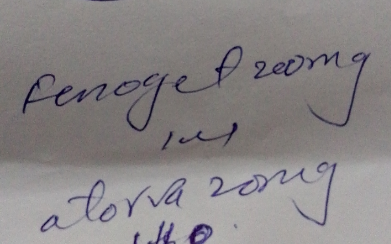 fenoget 200mg
1x1
atorva 20mg